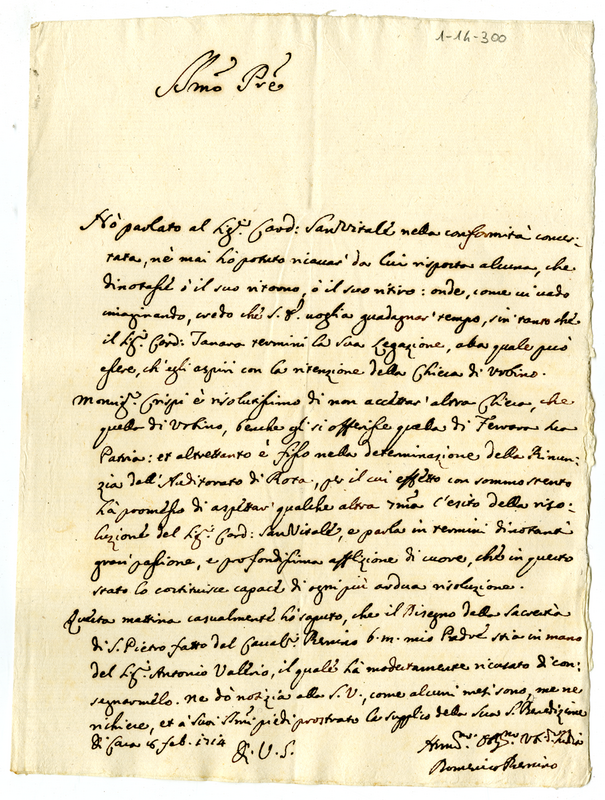 1-14-300
SSmo Pre
Hò parlato al Sigr. Card: SanVitale nella conformità concer-
tata, nè mai hò potuto ricavar' da lui risposta alcuna, che
dinotasse ò il suo ritorno, ò il suo ritiro: onde, come io vado
imaginando, credo che S. E. voglia guadagnar' tempo, sin' tanto che
il Sigr. Card: Tanara termini la sua Legazione, alla quale può
essere, ch'egli aspiri con la ritenzione della Chiesa di Urbino.
Monsigr. Crispi è risolutissimo di non accettar' altra Chiesa, che
quella di Urbino, benche gli si offerisse quella di Ferrara sua
Patria: et altrettanto è fisso nella determinazione della Rinun-
zia dell'Auditorato di Rota, per il cui effetto con sommo stento
hà promesso di aspettar' qualche altra 7ma l'esito della riso-
luzione del Sigr. Card: SanVitale, e parla in termini dinotanti
gran passione, e profondissima afflizione di cuore, che in questo
stato lo costituisce capace di ogni più ardua risoluzione.
Questa mattina casualmente hò saputo, che il Disegno della Sacrestia
di S. Pietro fatto dal Cavalr. Bernino b. m. mio Padre stia in mano
del Sigr. Antonio Valerio, il quale hà modestamente ricusato di con-
segnarmelo. ne dò notizia alla S. V., come alcuni mesi sono, me ne
richiese, et a' suoi SSmi piedi prostrato la supplico della Sua S. Benedizione
di Casa 16 feb. 1714
D. V. S.
Domenico Bernino